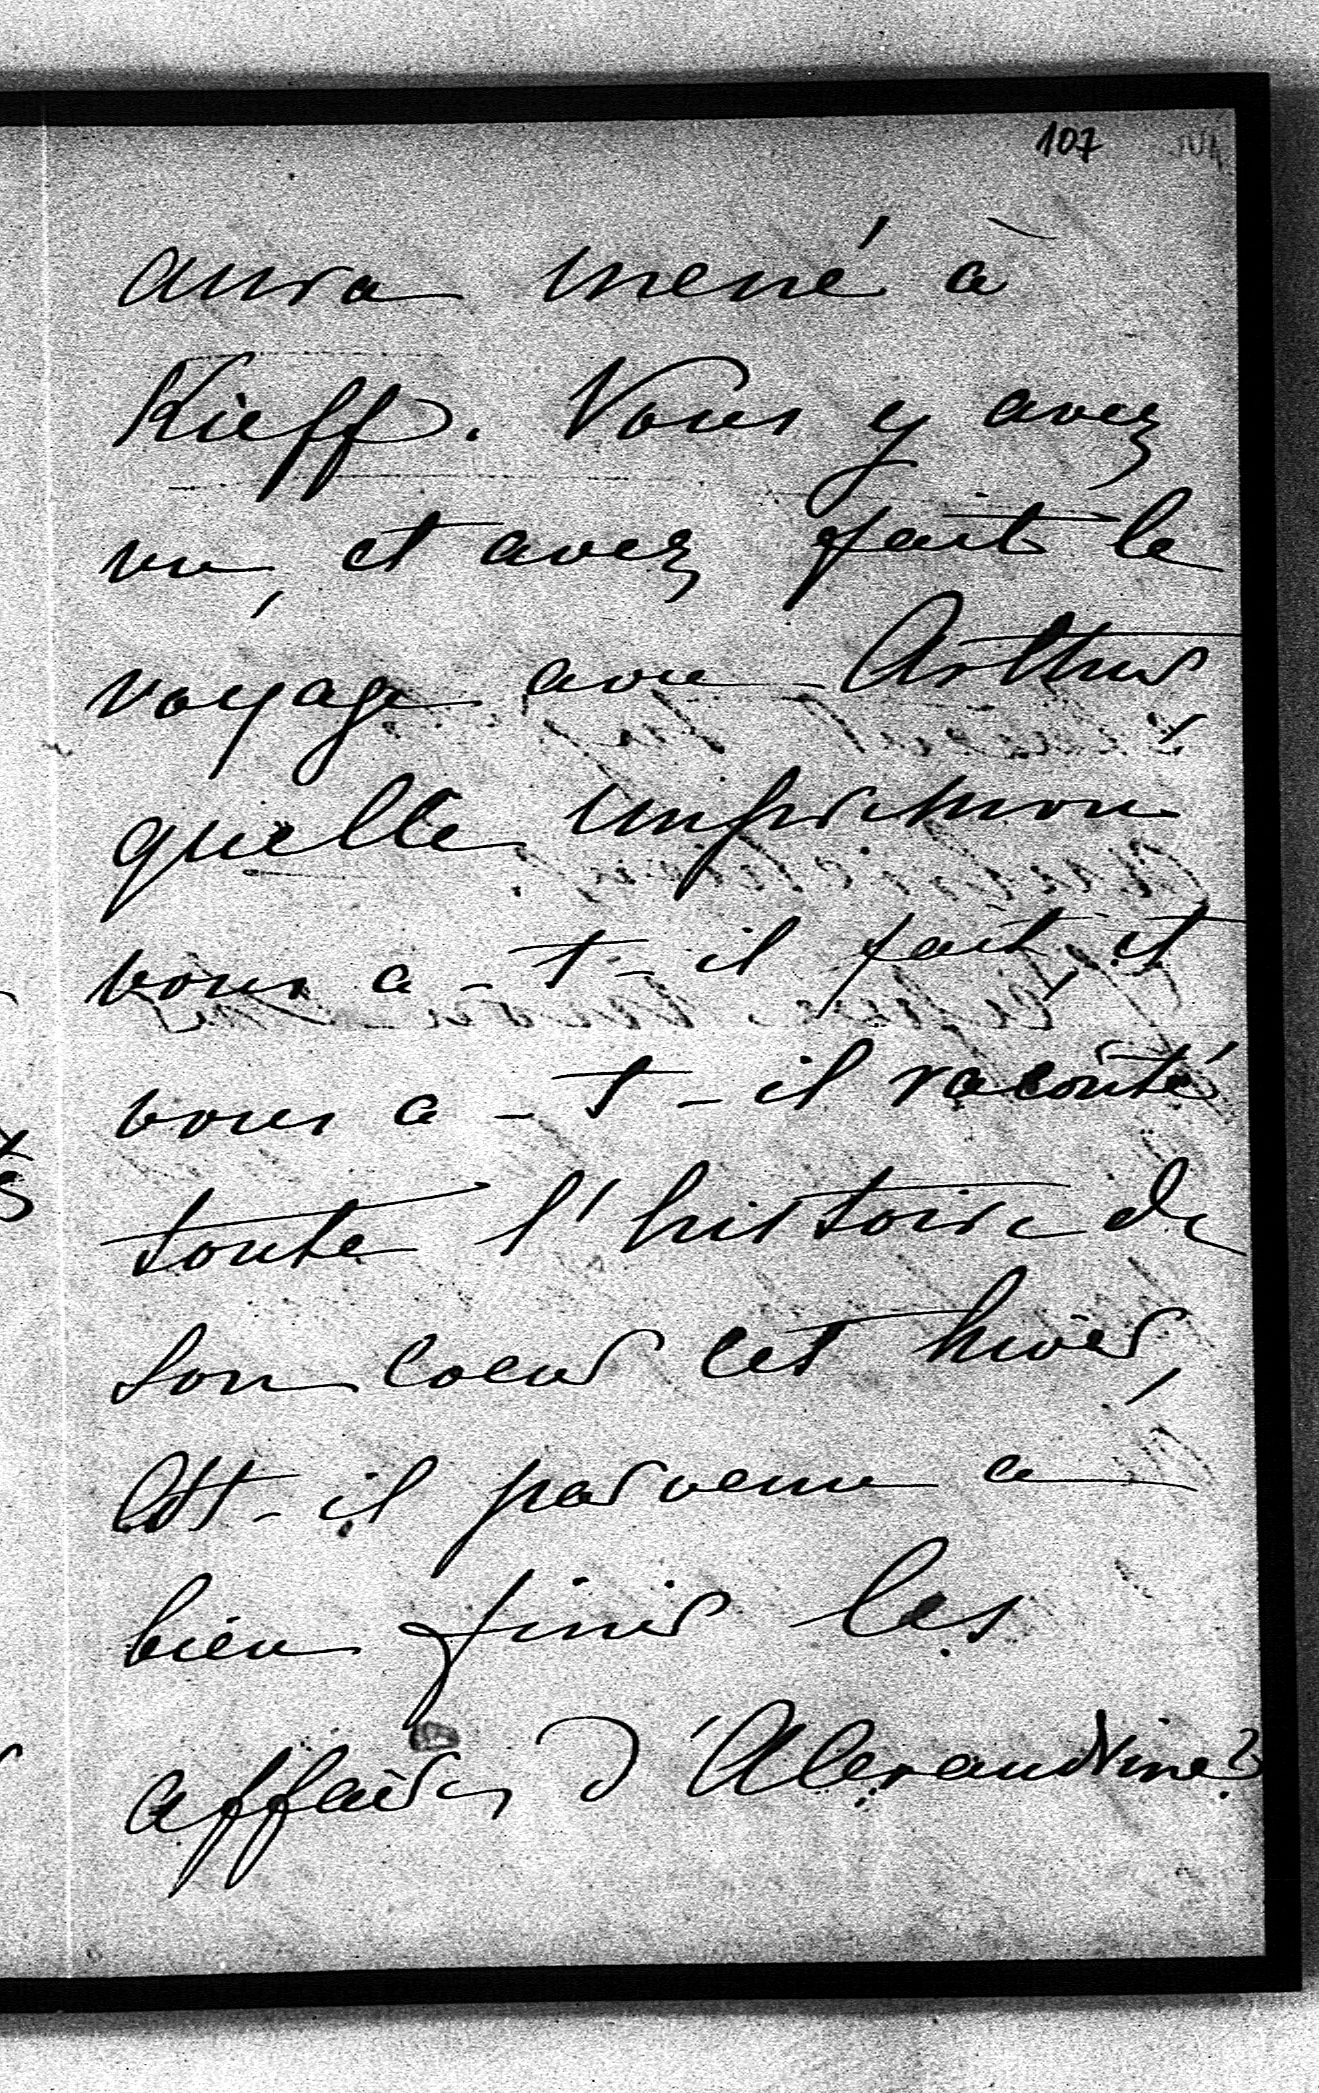 107
aura mené à
Kieff. Vous y avez
vu, et avez fait le
voyage avec Arthur,
quelle impression
vous a-t-il fait, et
vous a-t-il raconté
toute l'histoire de
son coeur cet hiver,
est-il parvenu a
bien finir les
affaires d'Alexandrine?